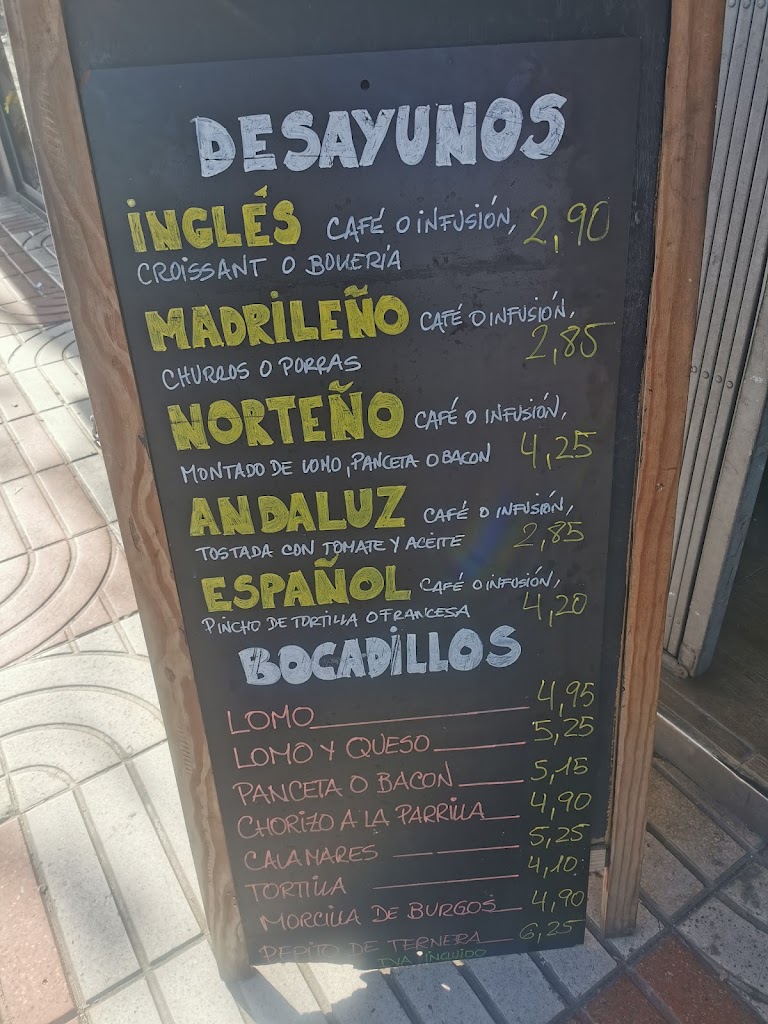 DESAYUNOS
INGLÉS CAFÉ O INFUSIÓN, 2,90
CROISSANT O BOLLERÍA
MADRILEÑO CAFÉ O INFUSIÓN,
CHURROS O PORRAS 2,85
NORTEÑO CAFÉ O INFUSIÓN,
MONTADO DE LOMO, PANCETA O BACON 4,25
ANDALUZ CAFÉ O INFUSIÓN,
TOSTADA CON TOMATE Y ACEITE 2,85
ESPAÑOL CAFÉ O INFUSIÓN,
PINCHO DE TORTILLA O FRANCESA 4,20
BOCADILLOS
LOMO 4,95
LOMO Y QUESO 5,25
PANCETA O BACON 5,15
CHORIZO A LA PARRILLA 4,90
CALAMARES 5,25
TORTILLA 4,10
MORCILLA DE BURGOS 4,90
PEPITO DE TERNERA 6,25
IVA INCLUIDO